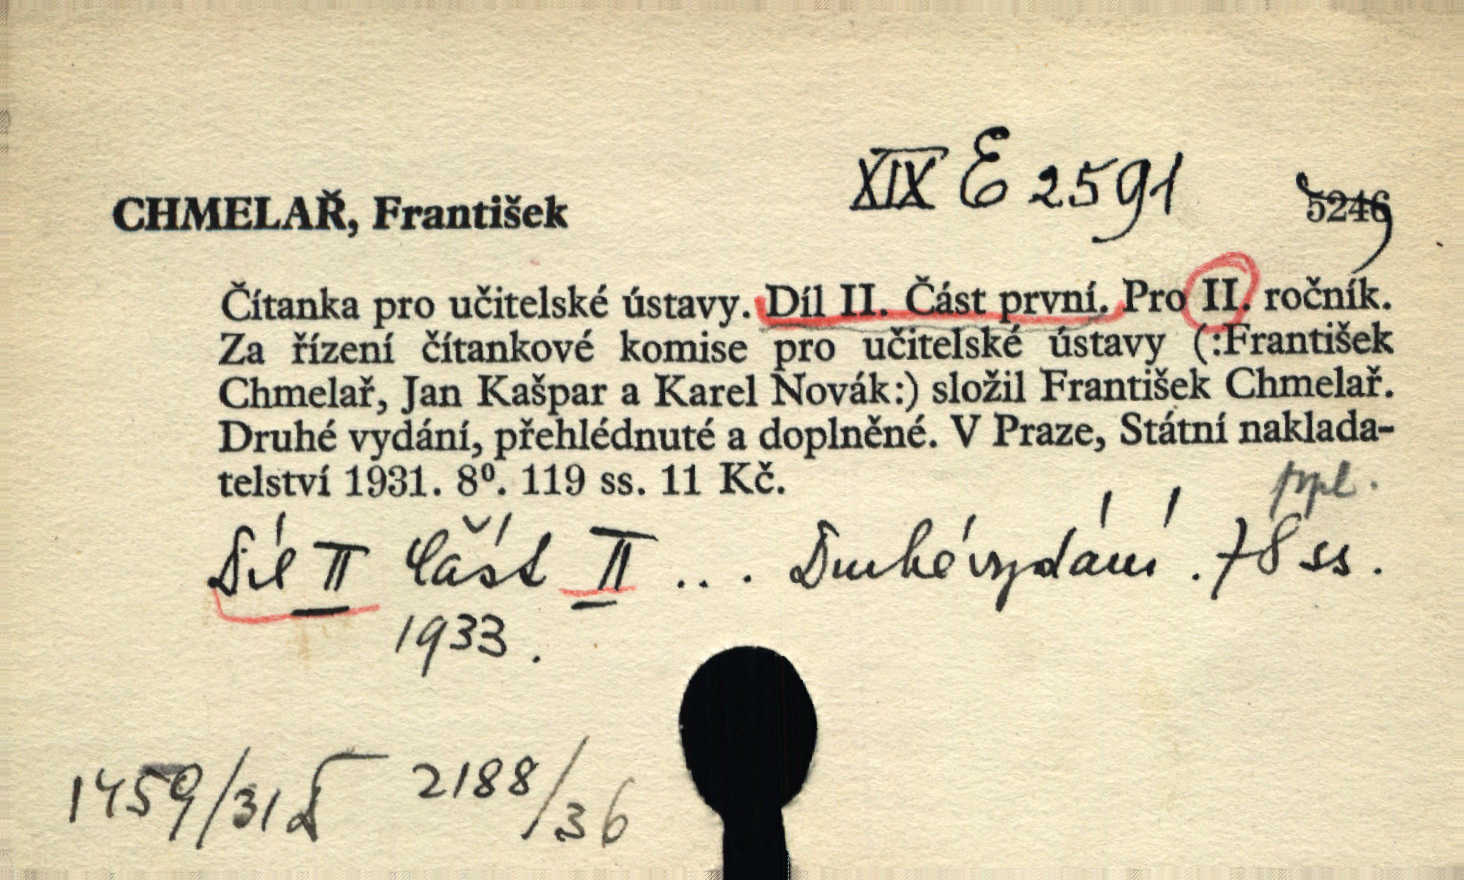 XIX E 2591
CHMELAŘ, František 5246
Čítanka pro učitelské ústavy. Díl II. Část první. Pro II. ročník.
Za řízení čítankové komise pro učitelské ústavy (:František
Chmelař, Jan Kašpar a Karel Novák:) složil František Chmelař.
Druhé vydání, přehlédnuté a doplněné. V Praze, Státní naklada-
telství 1931. 8⁰. 119 ss. 11 Kč.
Díl II Část II ... Druhé vydání. 78 ss.
1933.
1459/31 2188/36